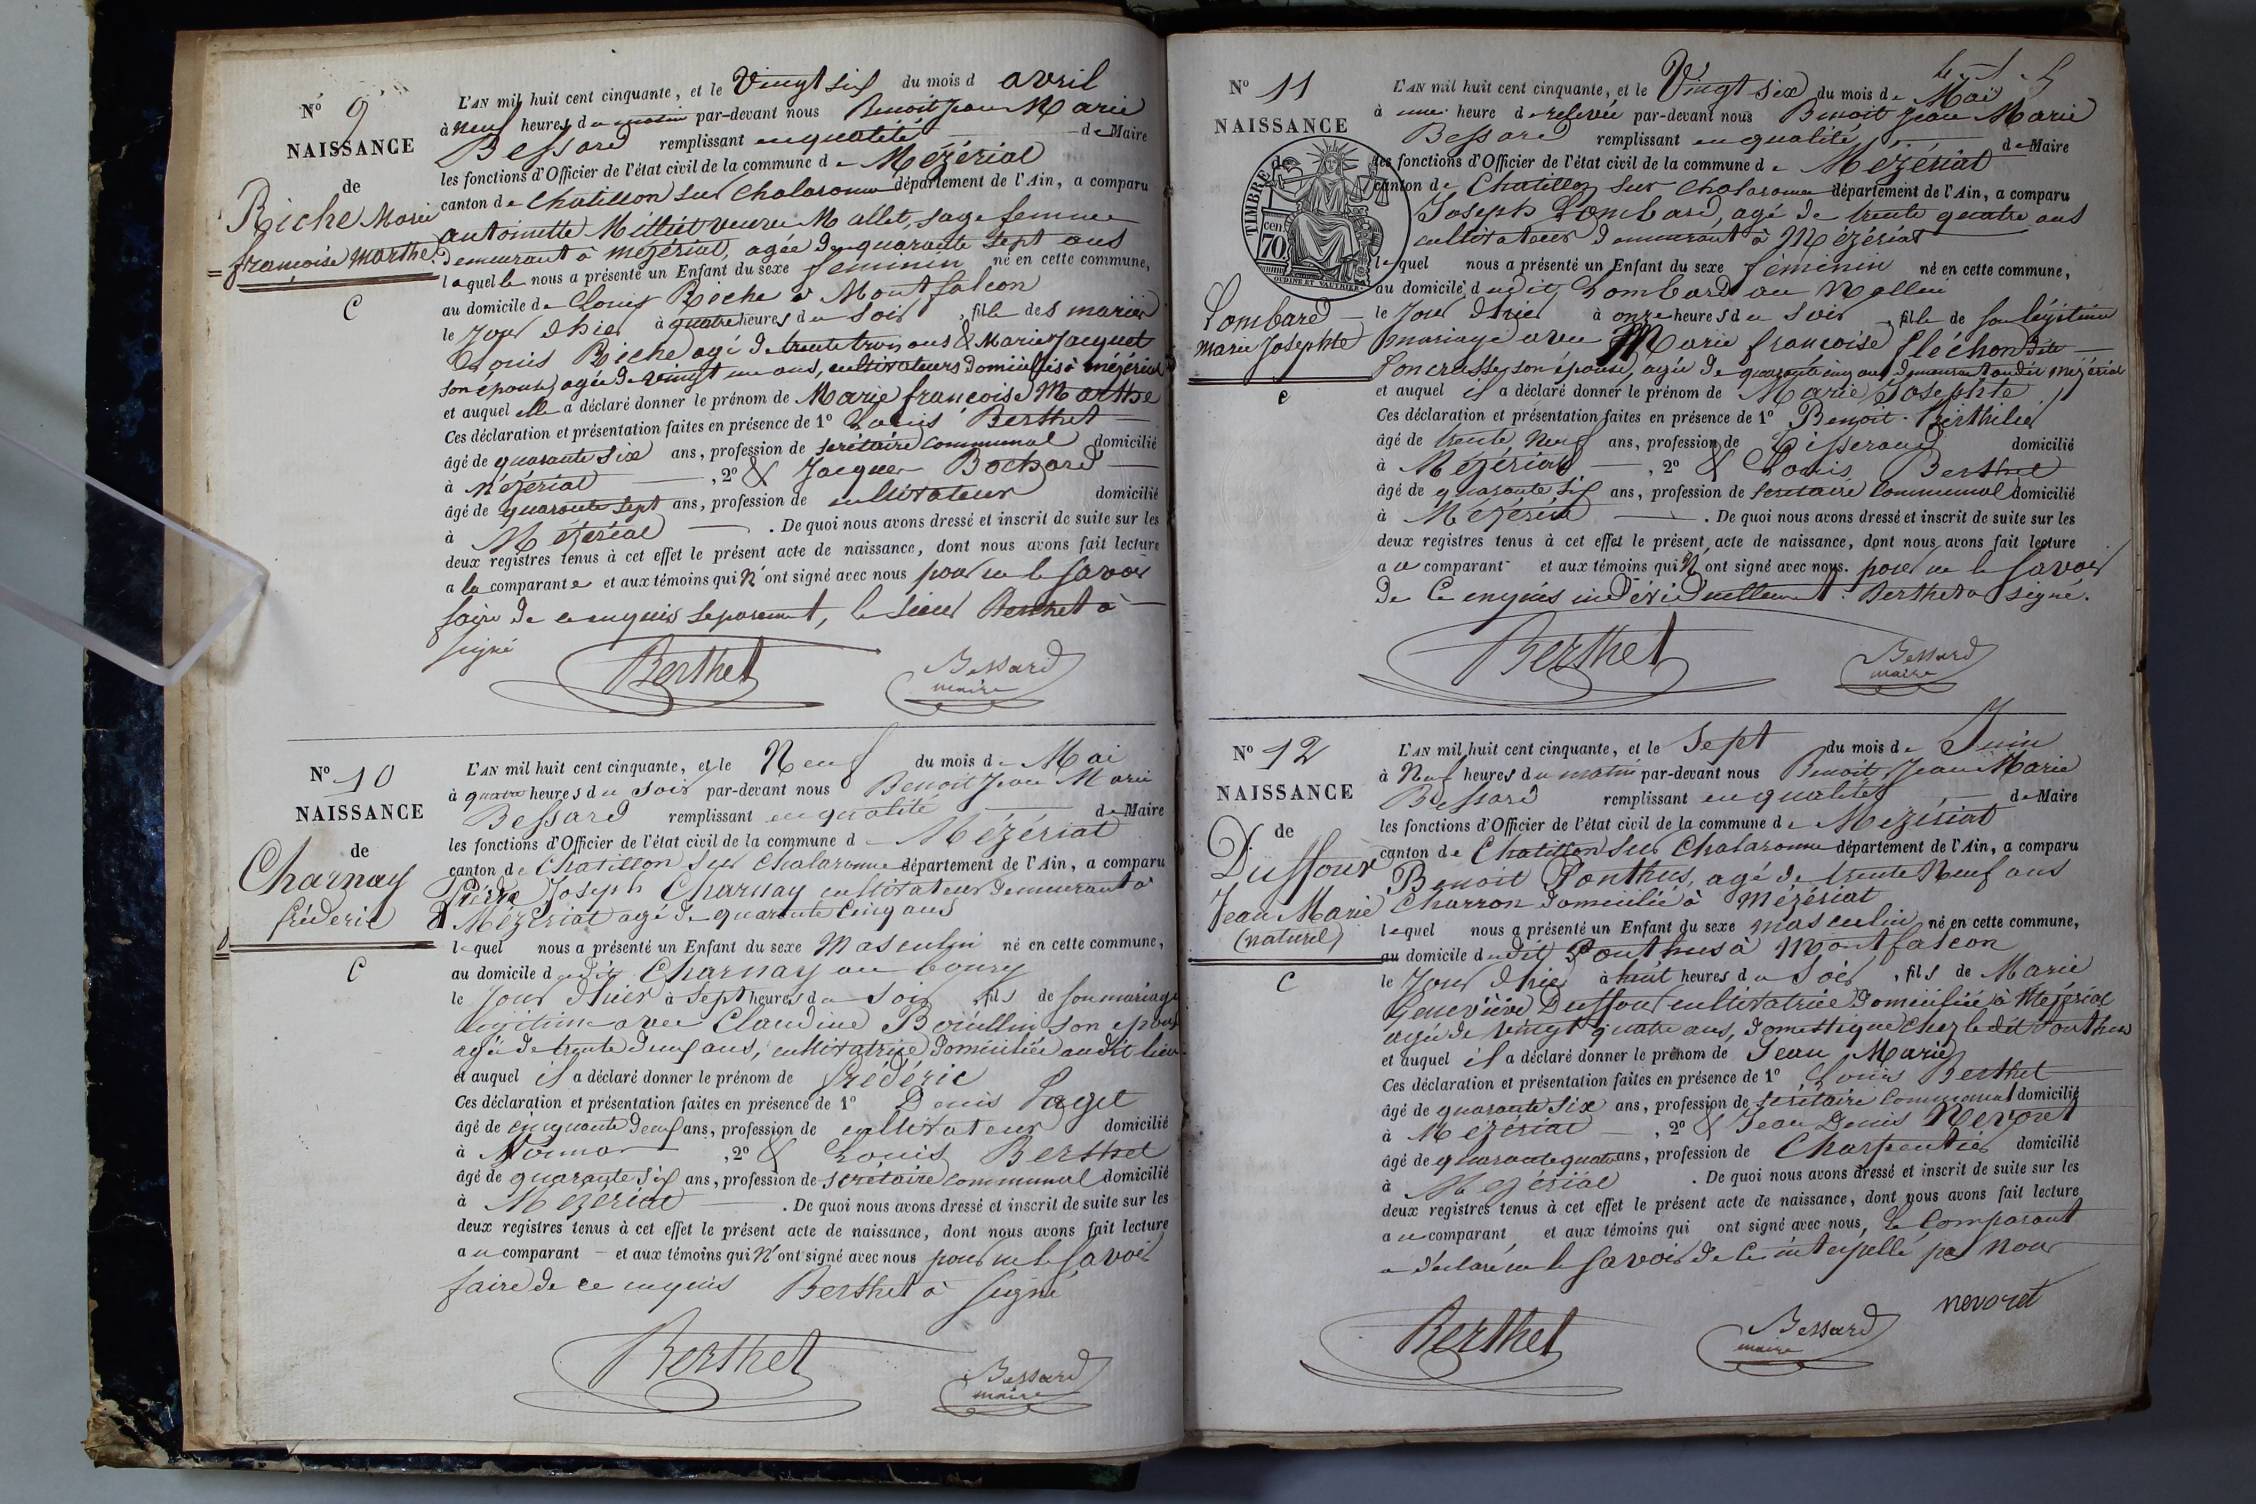 N° 9
NAISSANCE
de
Riche Marie
françoise Marthe
C
L'AN mil huit cent cinquante, et le Vingt six du mois d avril
à neuf heures du matin par-devant nous Benoit Jean Marie
Bessard remplissant en qualité de Maire
les fonctions d'Officier de l'état civil de la commune de Mézériat
canton de Chatillon sur Chalaronne département de l'Ain, a comparu
antoinette Milliet veuve Mallet, sage femme
demeurant à mézériat, agée de quarante sept ans
laquelle nous a présenté un Enfant du sexe féminin né en cette commune,
au domicile de Louis Riche à Montfalcon
le jour d'hier à quatre heures du soir, fille des mariés
Louis Riche agé de trente trois ans & Marie Jacquet
son épouse, agée de vingt un ans, cultivateurs domiciliés à mézériat
et auquel elle a déclaré donner le prénom de Marie françoise Marthe
Ces déclaration et présentation faites en présence de 1° Louis Berthet
âgé de quarante six ans, profession de secrétaire communal domicilié
à Mézériat, 2° & Jacques Bochard
âgé de quarante sept ans, profession de cultivateur domicilié
à Mézériat. De quoi nous avons dressé et inscrit de suite sur les
deux registres tenus à cet effet le présent acte de naissance, dont nous avons fait lecture
a la comparante et aux témoins qui n'ont signé avec nous pour ne le savoir
faire de ce enquis séparement, le sieur Berthet a
signé
Berthet
Bessard
maire
N° 10
NAISSANCE
de
Charnay
fréderic
C
L'AN mil huit cent cinquante, et le Neuf du mois de Mai
à quatre heures du soir par-devant nous Benoit Jean Marie
Bessard remplissant en qualité de Maire
les fonctions d'Officier de l'état civil de la commune d Mézériat
canton de Chatillon sur Chalaronne département de l'Ain, a comparu
Pierre Joseph Charnay cultivateur demeurant à
Mézériat agé de quarante cinq ans
lequel nous a présenté un Enfant du sexe Masculin né en cette commune,
au domicile dudit Charnay au bourg
le jour d'hier à sept heures du soir, fils de son mariage
légitime avec Claudine Bouillin son épouse
agée de trente deux ans, cultivatrice domiciliée audit lieu
et auquel il a déclaré donner le prénom de frédéric
Ces déclaration et présentation faites en présence de 1° Denis Paget
âgé de cinquante deux ans, profession de cultivateur domicilié
à, 2° & Louis Berthet
âgé de quarante six ans, profession de secrétaire communal domicilié
à Mézériat. De quoi nous avons dressé et inscrit de suite sur les
deux registres tenus à cet effet le présent acte de naissance, dont nous avons fait lecture
au comparant et aux témoins qui n'ont signé avec nous pour ne le savoir
faire de ce enquis Berthet a signé
Berthet
Bessard
maire
N° 11
NAISSANCE
de
TIMBRE
cen.
70.
OUDINÉ ET VAUTHIER
Lombard
Marie Josephte
c
L'AN mil huit cent cinquante, et le Vingt six du mois de Mai
à une heure de relevée par-devant nous Benoit Jean Marie
Bessard remplissant en qualité de Maire
les fonctions d'Officier de l'état civil de la commune de Mézériat
canton de Chatillon sur Chalaronne département de l'Ain, a comparu
Joseph Lombard, agé de trente quatre ans
cultivateur demeurant à Mézériat
lequel nous a présenté un Enfant du sexe féminin né en cette commune,
au domicile dudit Lombard au
le jour d'hier à onze heures du soir, fille de son légitime
mariage avec Marie françoise fléchon dite
Poncrasse, son épouse, agée de quarante cinq ans, demeurant audit mézériat
et auquel il a déclaré donner le prénom de Marie Josephte
Ces déclaration et présentation faites en présence de 1° Benoit Berthelier
âgé de trente neuf ans, profession de Tisserand domicilié
à Mézériat, 2° & Louis Berthet
âgé de quarante six ans, profession de secrétaire communal domicilié
à Mézériat. De quoi nous avons dressé et inscrit de suite sur les
deux registres tenus à cet effet le présent acte de naissance, dont nous avons fait lecture
au comparant et aux témoins qui n'ont signé avec nous. pour ne le savoir
de ce enquis individuellement. Berthet a signé.
Berthet
Bessard
maire
N° 12
NAISSANCE
de
Duffour
Jean Marie
(naturel)
C
L'AN mil huit cent cinquante, et le Sept du mois de Juin
à Neuf heures du matin par-devant nous Benoit Jean Marie
Bessard remplissant en qualité de Maire
les fonctions d'Officier de l'état civil de la commune de Mézériat
canton de Chatillon sur Chalaronne département de l'Ain, a comparu
Benoit Ponthus, agé de trente Neuf ans
Charron domicilié à Mézériat
lequel nous a présenté un Enfant du sexe masculin né en cette commune,
au domicile dudit Ponthus à Montfalcon
le jour d'hier à huit heures du soir, fils de Marie
Geneviève Duffour cultivatrice domiciliée à Mézériat
agée de vingt quatre ans, domestique chez le dit Ponthus
et auquel il a déclaré donner le prénom de Jean Marie
Ces déclaration et présentation faites en présence de 1° Louis Berthet
âgé de quarante six ans, profession de secrétaire communal domicilié
à Mézériat, 2° & Jean Denis Nevoret
âgé de quarante quatre ans, profession de Charpentier domicilié
à Mézériat. De quoi nous avons dressé et inscrit de suite sur les
deux registres tenus à cet effet le présent acte de naissance, dont nous avons fait lecture
au comparant et aux témoins qui ont signé avec nous, le comparant
a déclaré ne le savoir de ce interpellé par nous
nevoret
Berthet
Bessard
maire